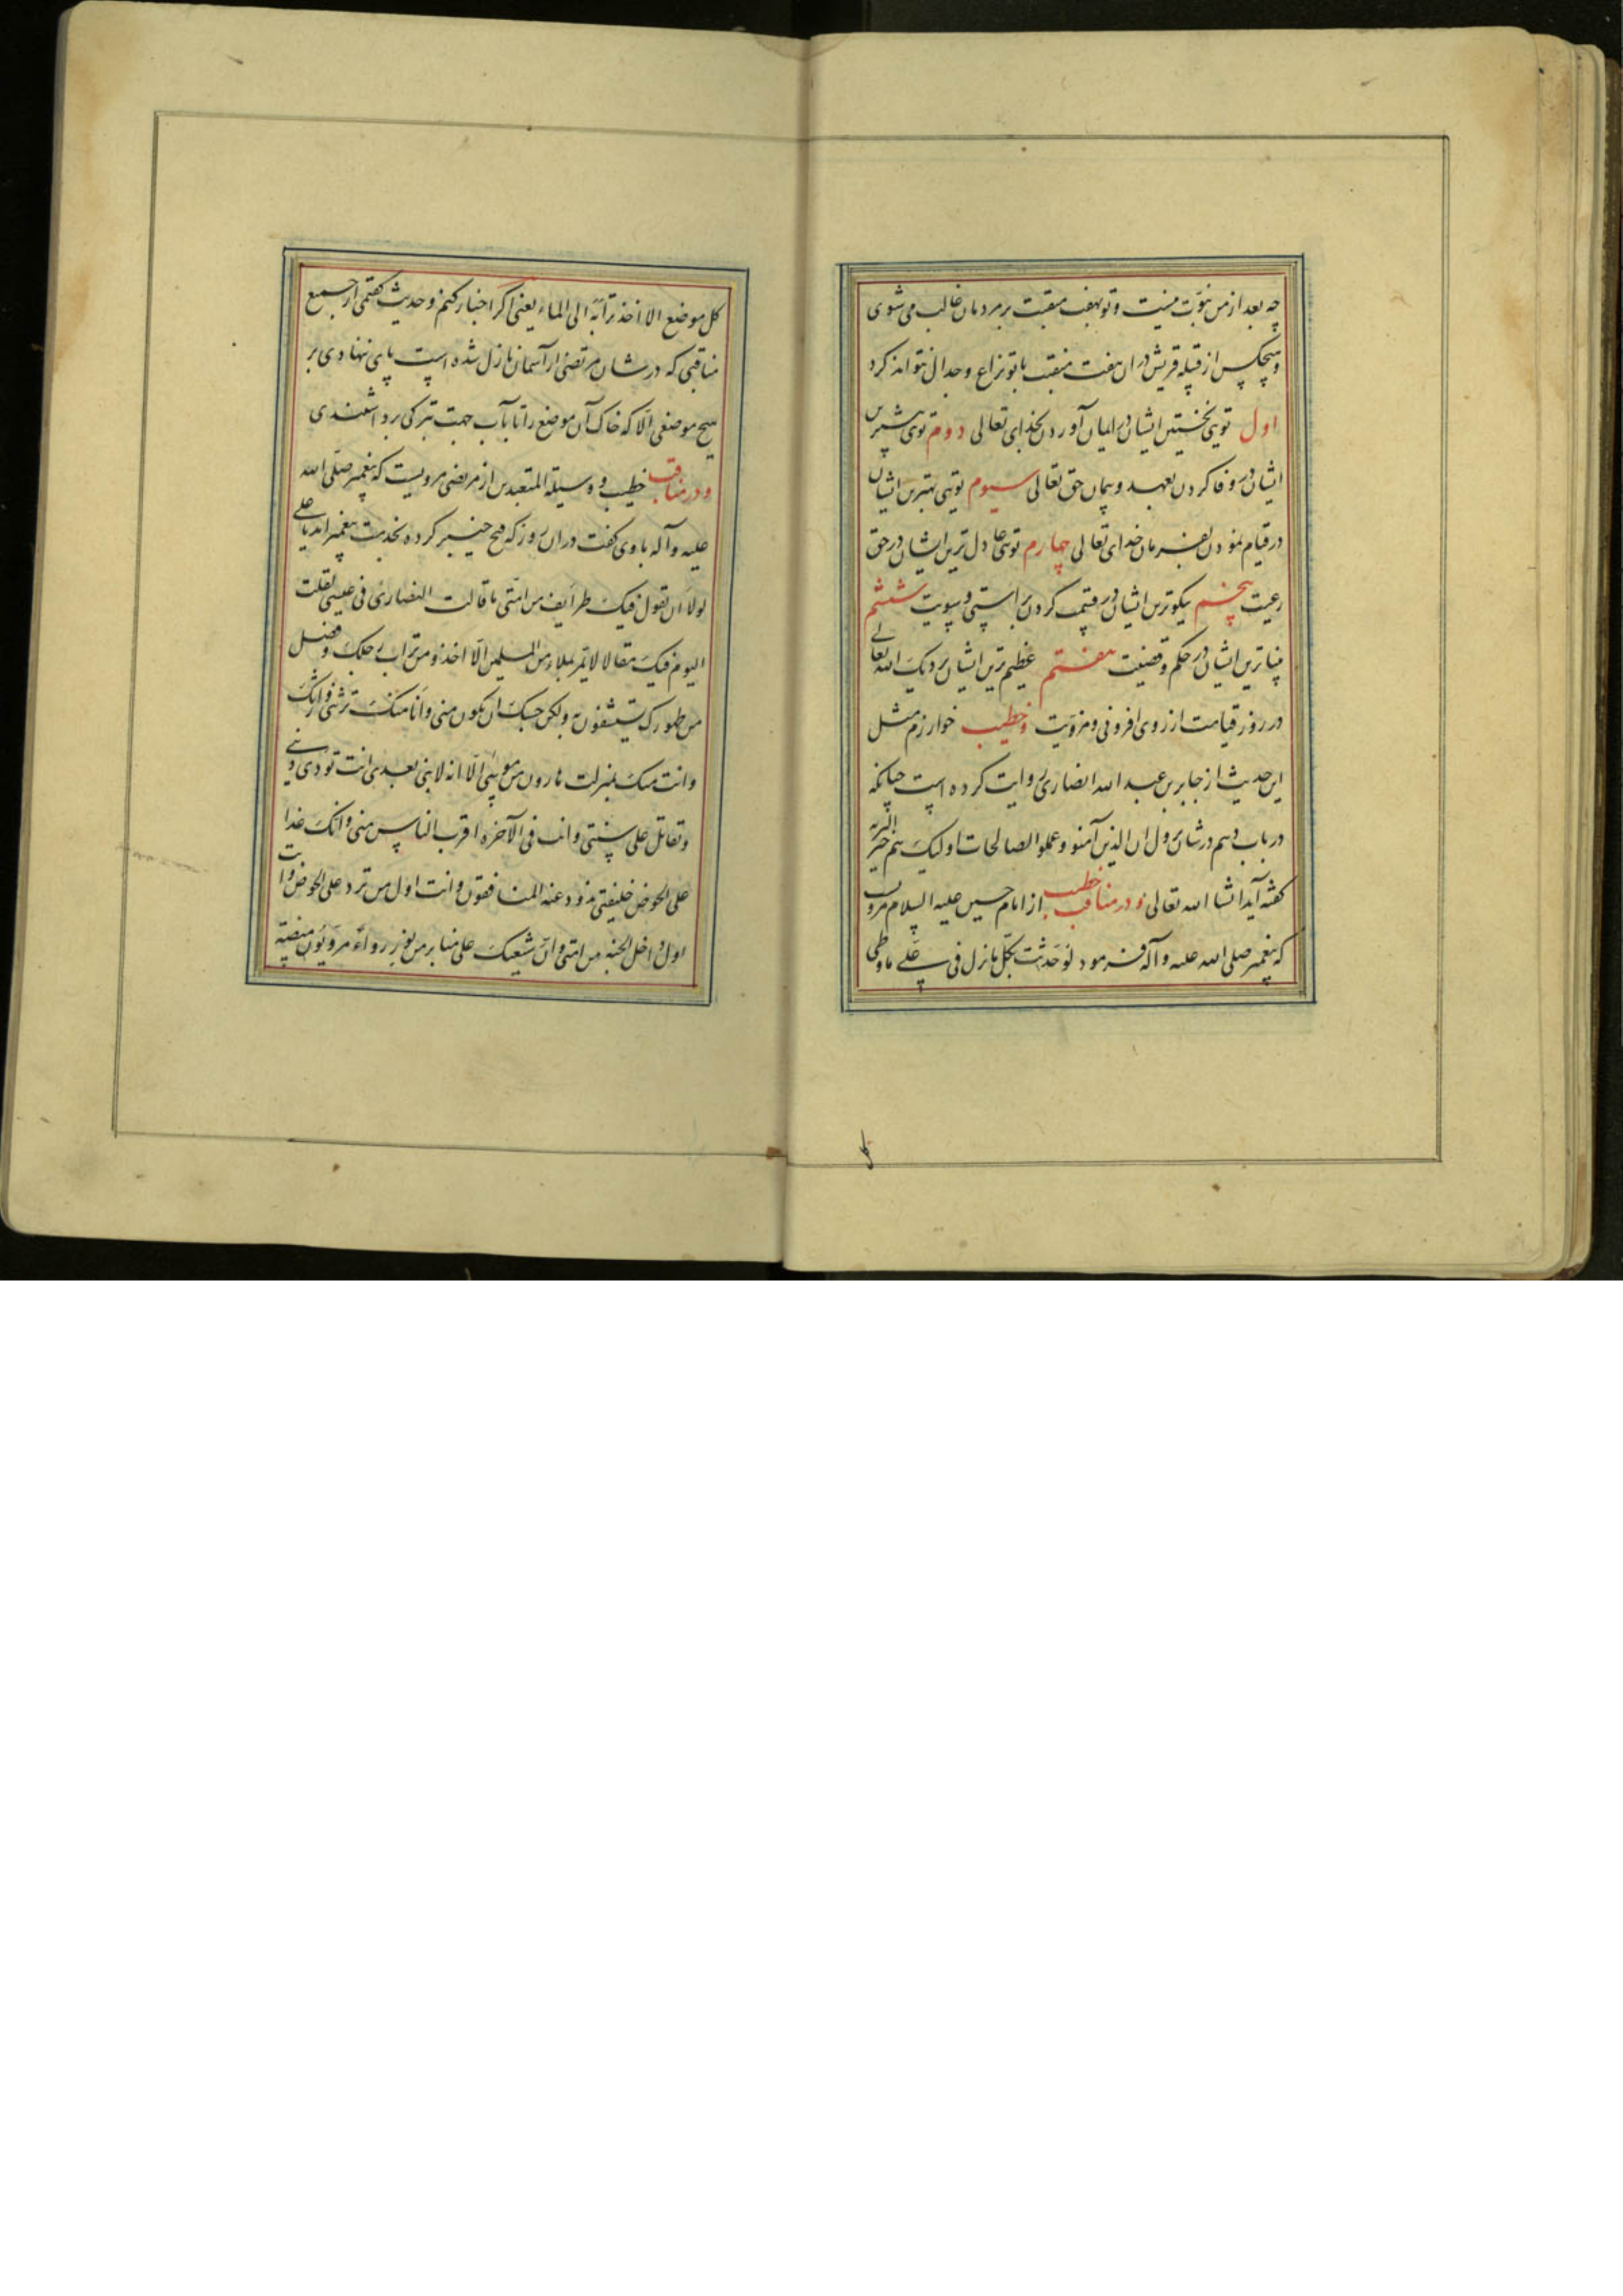 چه بعد از من نبوّت نیست و تو بهفت منقبت بر مردمان غالب می شوی
و هیچکس از قبیله قریش در ان هفت منقبت با تو نزاع و جدال نتواند کرد
اول تویی نخستین ایشان در ایمان آوردن بخدای تعالی دوم تویی بیشترین
ایشان در وفا کردن بعهد و پیمان حق تعالی سیوم تویی بهترین ایشان
در قیام نمودن بفرمان خدای تعالی چهارم تویی عادل ترین ایشان در حق
رعیت پنجم نیکوترین ایشان در قسمت کردن براستی و سویت ششم
بیناترین ایشان در حکم و قضیت هفتم عظیم ترین ایشان نزدیک الله تعالی
در روز قیامت از روی افزونی و مزیّت و خطیب خوارزم مثل
این حدیث از جابر بن عبد الله انصاری روایت کرده است چنانکه
در باب دهم در شان نزول ان الذین آمنو و عملو الصالحات اولیک هم خیر البریّه
گفته آید انشا الله تعالی و در مناقب خطیب از امام حسین علیه السلام مرویست
که پیغمبر صلی الله علیه و آله فرمود لو حَدثت بکلّ ما نزل فی علی ما وطی
کل
کل موضع الا اخذ ترابه الی الماء یعنی اگر اخبار کنم و حدیث گفتمی از جمیع
مناقبی که در شان مرتضی از آسمان نازل شده است پای ننهادی بر
هیچ موضعی الّا که خاک آن موضع را تا بآب جهت تبرکی برداشتندی
و در مناقب خطیب و وسیلة المتعبدین از مرتضی مرویست که پیغمبر صلّی الله
علیه و آله با وی گفت در ان روز که فتح خیبر کرده بخدمت پیغمبر آمد یا علی
لولا ان تقول فیک طرایف من امّتی ما قالت النصاری فی عیسی لقلت
الیوم فیک مقالا لا تمر بملاء من المسلمین الّا اخذو من تراب رجلک و فضل
من طهورک یستشفون به ولکن حسبک ان تکون منی و انا منک ترثنی و ارثک
و انت منک بمنزلت هارون من موسی الّا انه لا نبی بعدی انت تودی دینی
و تقاتل علی سنتی و انت فی الآخره اقرب الناس منی و انک غدا
علی الحوض خلیفتی تذود عنه المنافقون و انت اول من ترد علی الحوض و انت
اول داخل الجنه من امتی و انّ شیعتک علی منابر من نور رواءً مرویّون مبیضّة